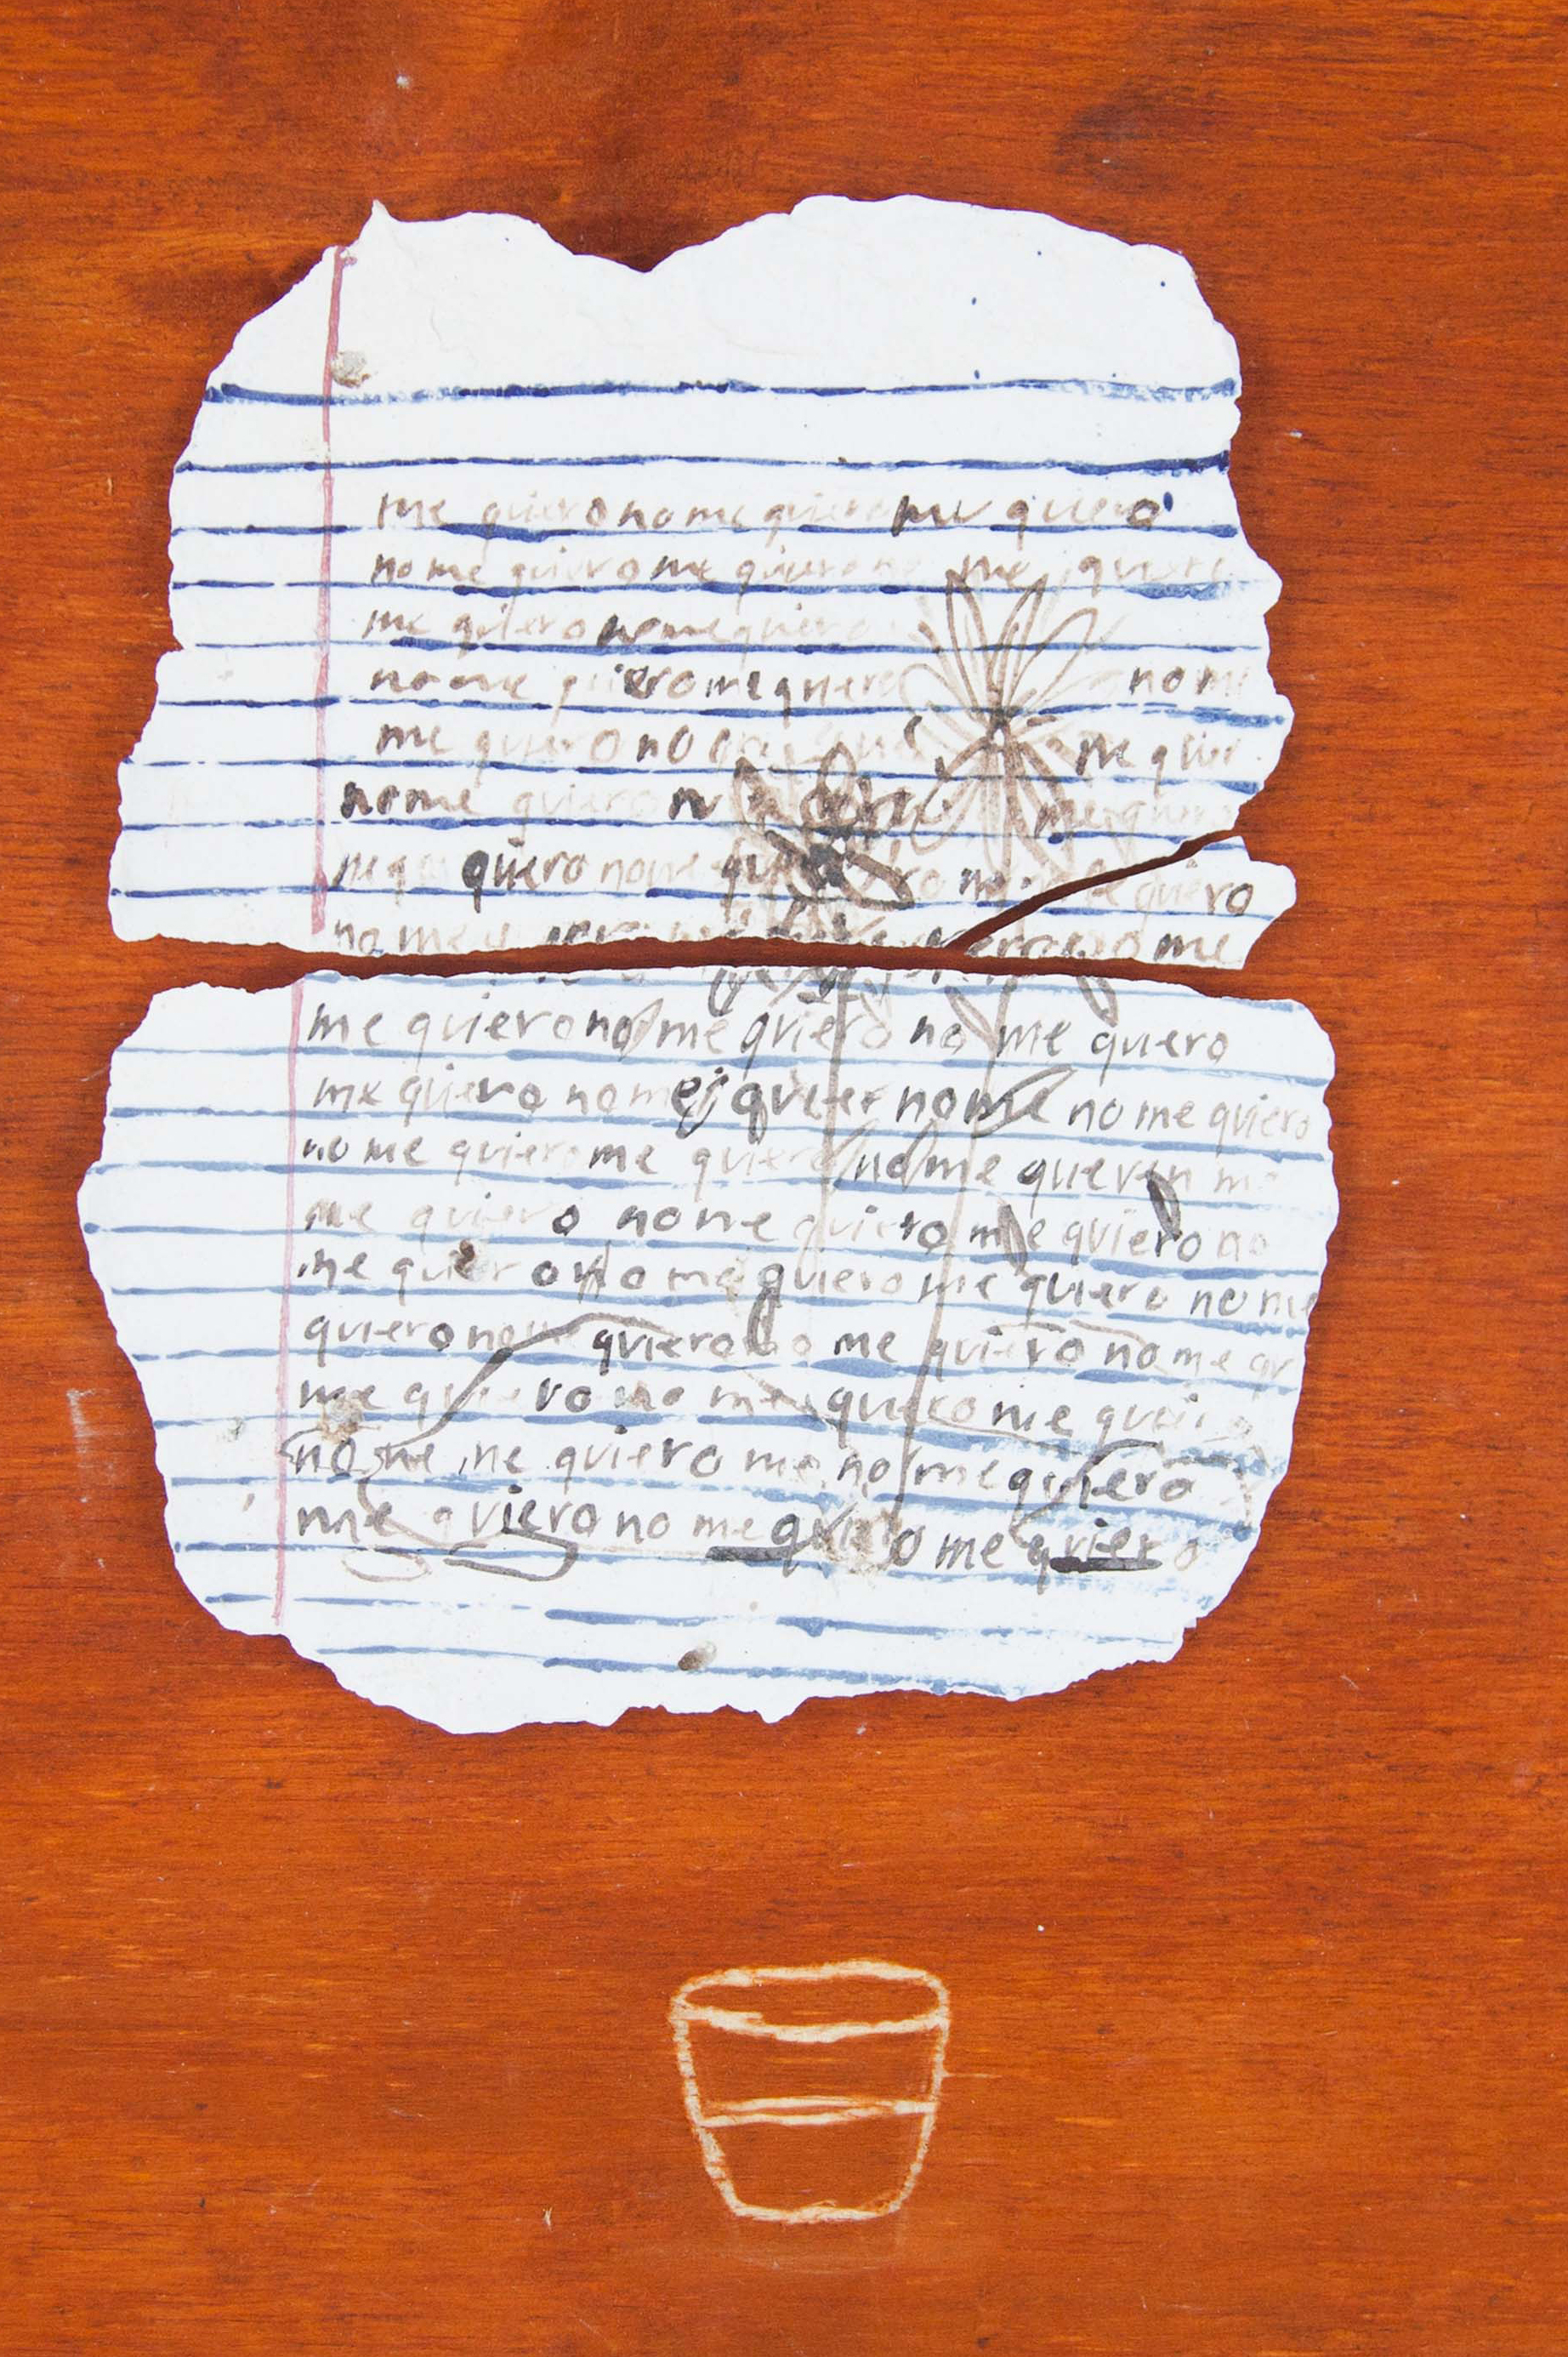 me quiero no me quiero me quiero
no me quiero me quiero no me quiero
me quiero no me quiero
no me quiero me quiero no me
me quiero no me quier
no me quiero me quiero
me quiero no me quiero
no me me
me quiero no me quiero no me quiero
me quiero no me quier no me no me quiero
no me quiero me quiero no me quieren me
me quiero no me quiero me quiero no
me quiero no me quiero me quiero no me
quiero no me quiero no me quiero no me qu
me quiero no me quiero me quier
no me me quiero me no me quiero
me quiero no me quiero me quiero